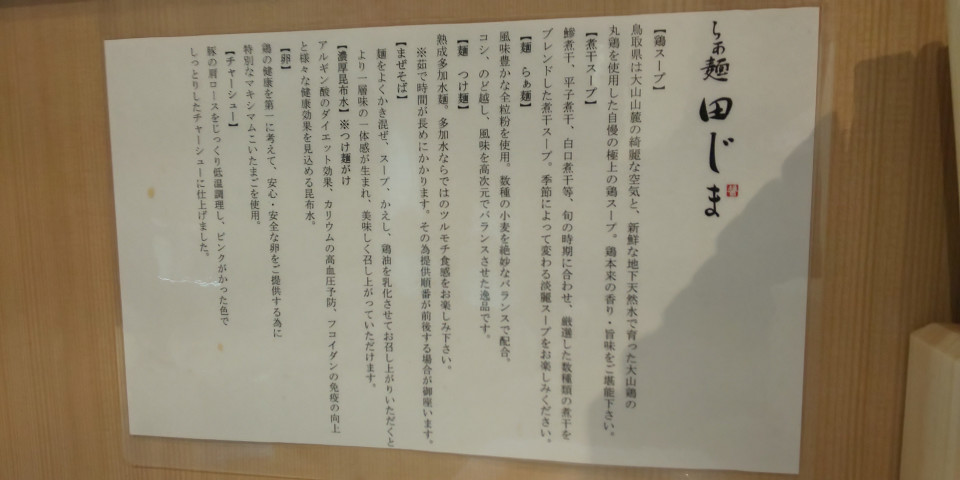 らぁ麺 田じま
【鶏スープ】
鳥取県は大山山麓の綺麗な空気と、新鮮な地下天然水で育った大山鶏の
丸鶏を使用した自慢の極上の鶏スープ。鶏本来の香り・旨味をご堪能下さい。
【煮干スープ】
鯵煮干、平子煮干、白口煮干等、旬の時期に合わせ、厳選した数種類の煮干を
ブレンドした煮干スープ。季節によって変わる淡麗スープをお楽しみください。
【麺 らぁ麺】
風味豊かな全粒粉を使用。数種の小麦を絶妙なバランスで配合。
コシ、のど越し、風味を高次元でバランスさせた逸品です。
【麺 つけ麺】
熟成多加水麺。多加水ならではのツルモチ食感をお楽しみ下さい。
※茹で時間が長めにかかります。その為提供順番が前後する場合が御座います。
【まぜそば】
麺をよくかき混ぜ、スープ、かえし、鶏油を乳化させてお召し上がりいただくと
より一層味の一体感が生まれ、美味しく召し上がっていただけます。
【濃厚昆布水】※つけ麺がけ
アルギン酸のダイエット効果、カリウムの高血圧予防、フコイダンの免疫の向上
と様々な健康効果を見込める昆布水。
【卵】
鶏の健康を第一に考えて、安心・安全な卵をご提供する為に
特別なマキシマムこいたまごを使用。
【チャーシュー】
豚の肩ロースをじっくり低温調理し、ピンクがかった色で
しっとりしたチャーシューに仕上げました。